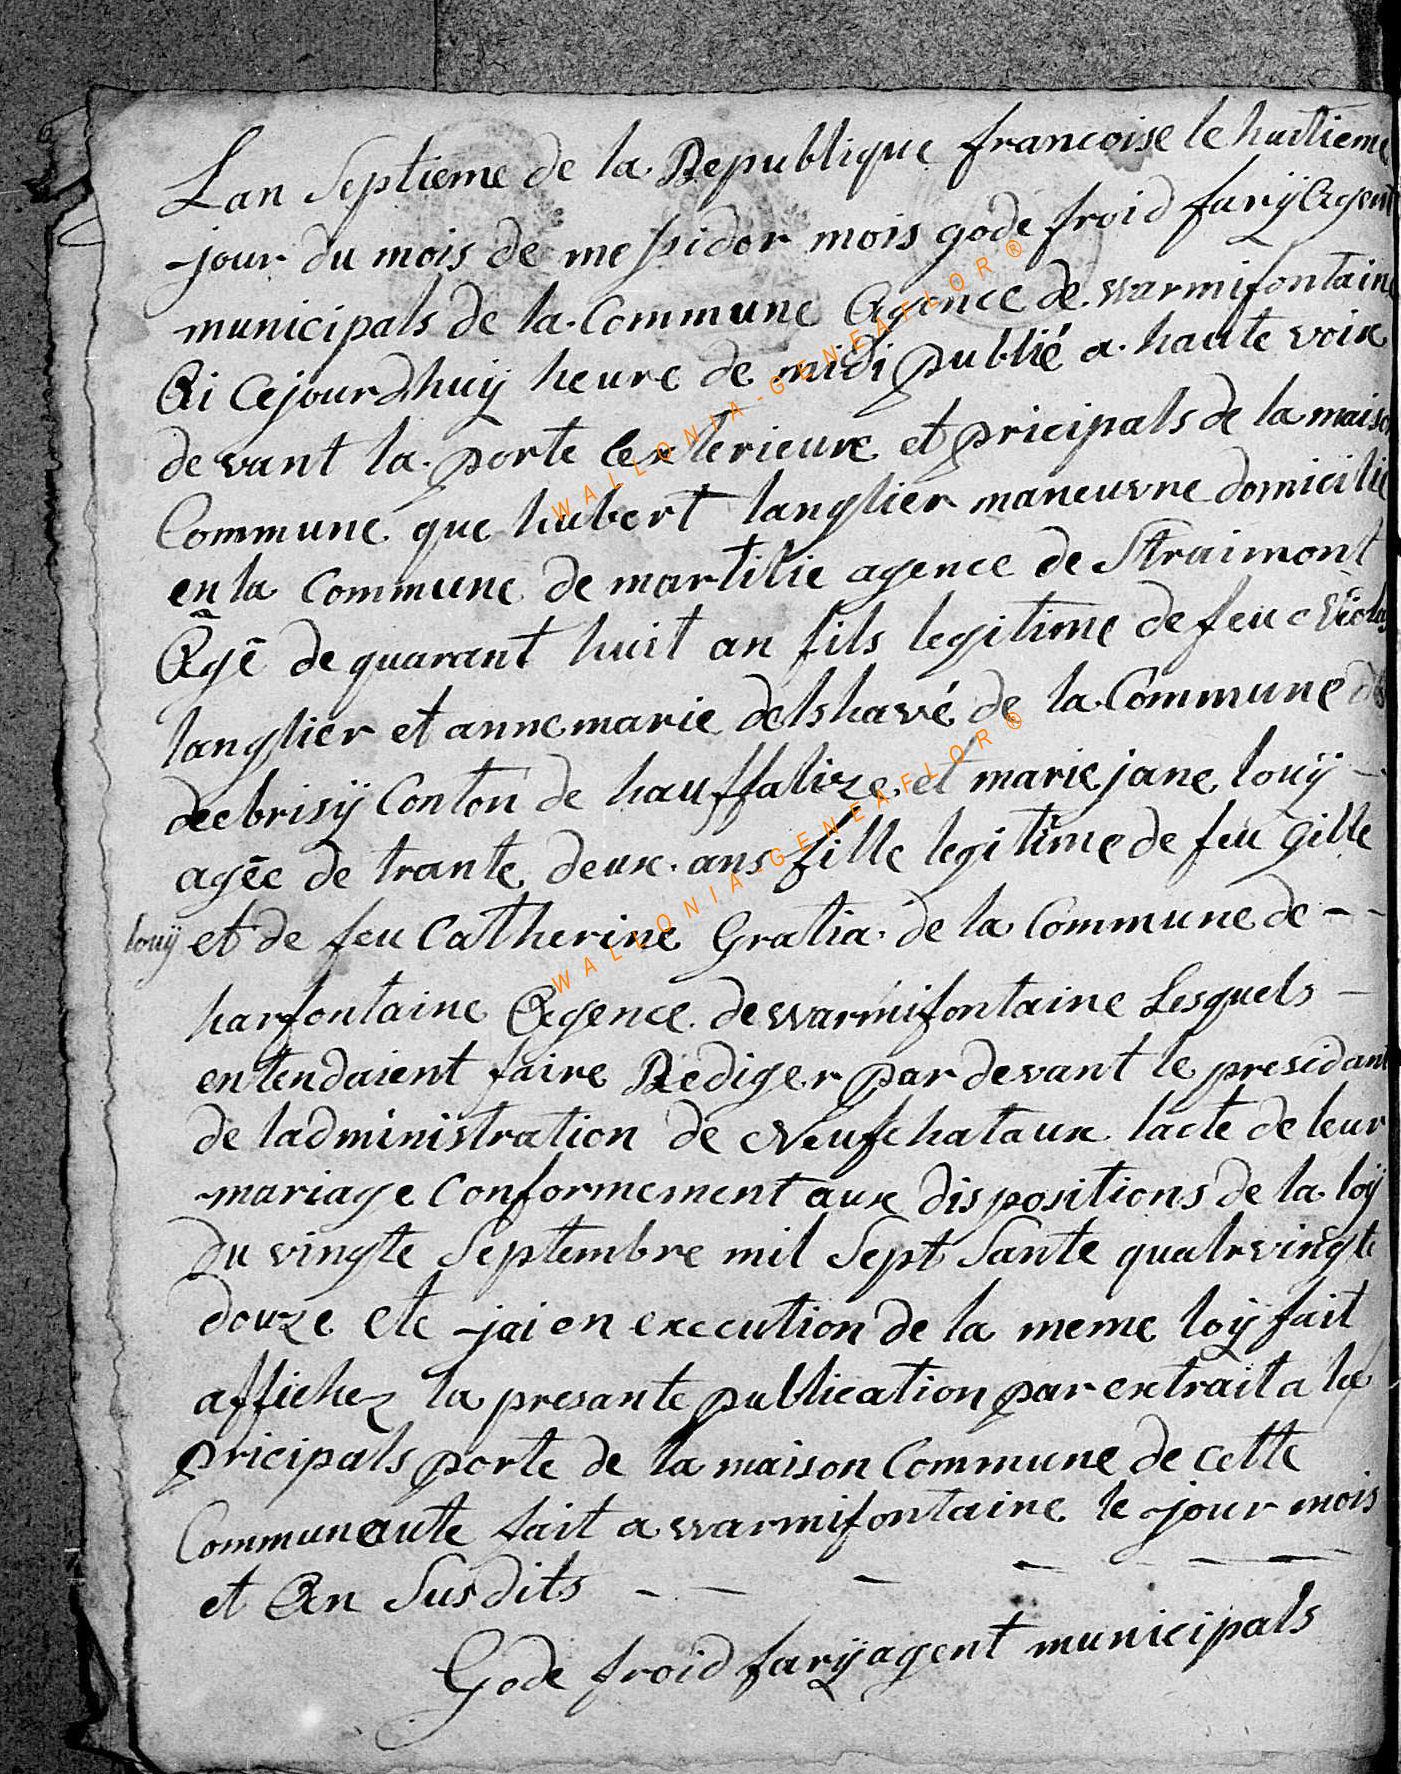 Lan Septieme de la Republique francoise le huitieme
jour du mois de messidor mois gode froid fary Agent
municipals de la Commune Agence de warmifontaine
Ai Cejourdhuy heure de midi publié a haute voix
de vant la porte Exterieure et pricipals de la maison
Commune que hubert langlier maneuvre domicilie
en la Commune de martilie agence de Straimont
Agé de quarant huit an fils legitime de feu
langlier et anne marie delshavé de la Commune
de brisÿ Conton de hauffalize et marie jane louÿ
agée de trante deux ans fille legitime de feu gille
louÿ et de feu Catherine Gratia de la Commune de
harfontaine Agence de warmifontaine Lesquels
entendaient faire Rediger par devant le presidant
de ladministration de Neufchataux lacte de leur
mariage Conformement aux dispositions de la loÿ
du vingte Septembre mil Sept Sante quatrvingte
douze etc jai en execution de la meme loÿ fait
affichez la presante publication par extrait a la
pricipals porte de la maison Commune de cette
Communaute fait a warmifontaine le jour mois
et An Susdits
Gode froid farÿ agent municipals
WALLONIA-GENEAFLOR®
WALLONIA-GENEAFLOR®